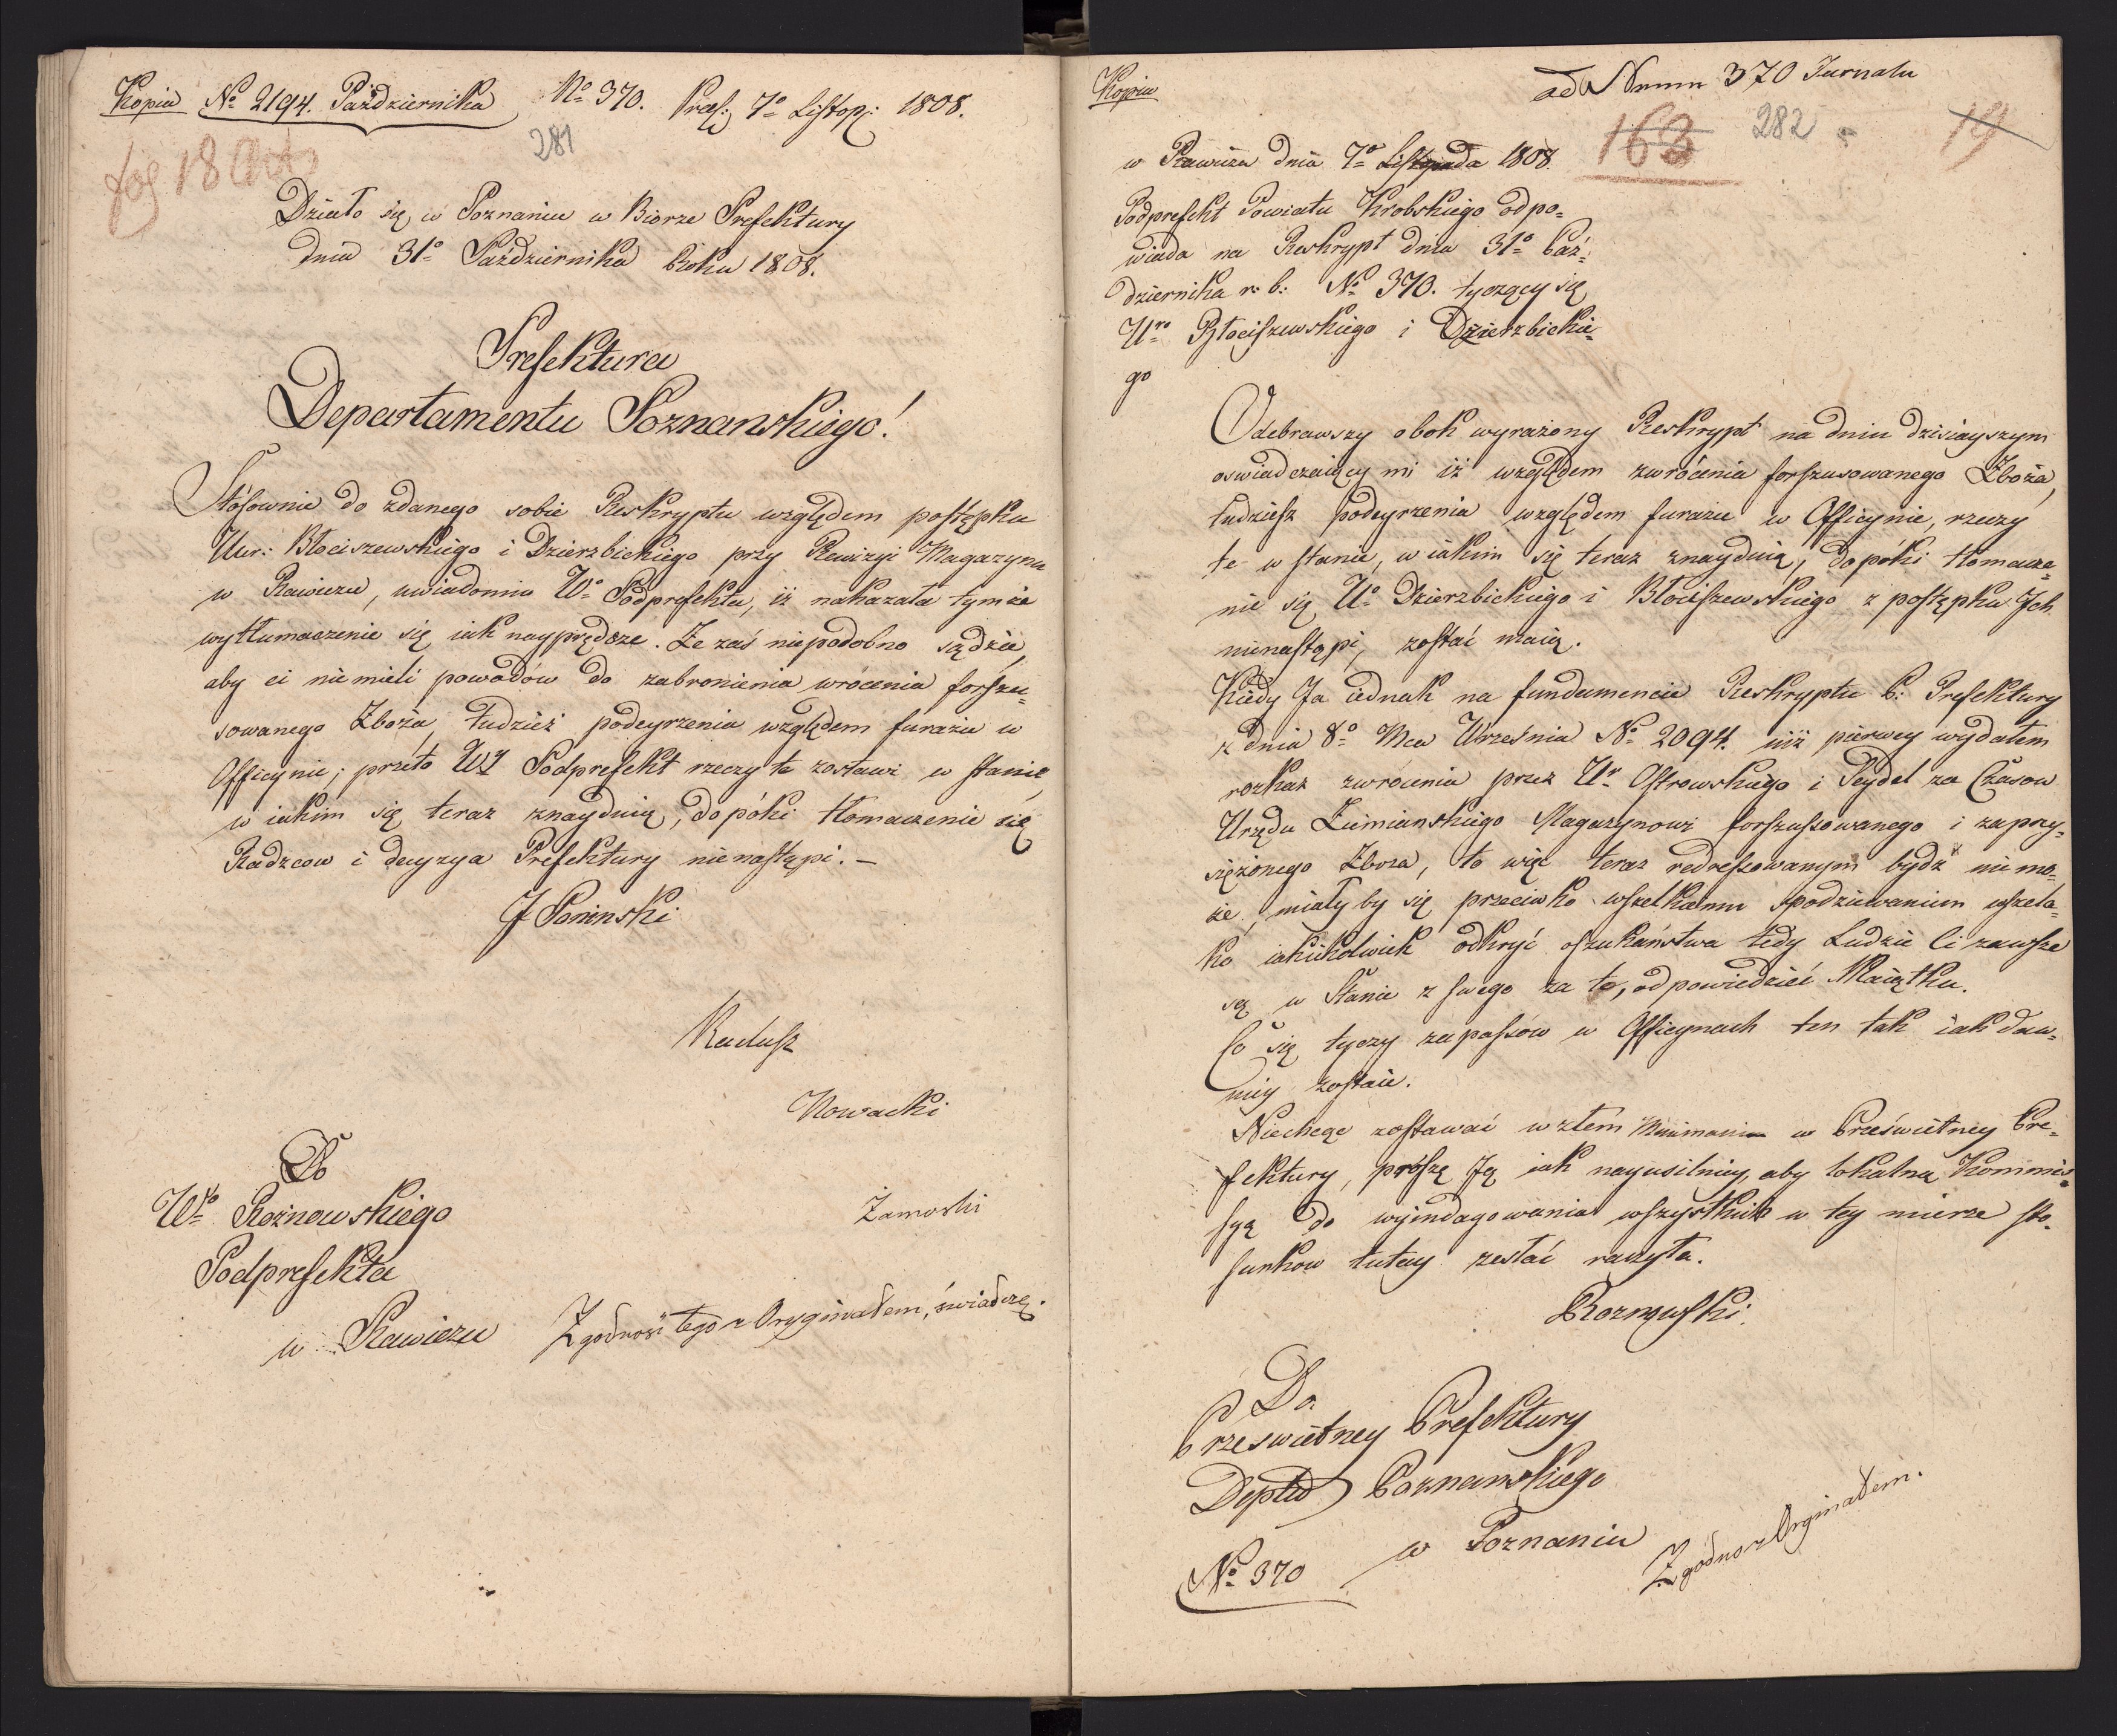 Kopia No 2194. Października No 370. Præs: 7o Listop: 1808.
281
fog 18 Act
Działo się w Poznaniu w Biorze Prefektury
dnia 31o Października Roku 1808.
Prefektura
Departamentu Poznanskiego!
Stósownie do zdanego sobie Reskryptu względem postępku
Uur: Błociszewskiego i Dzierzbickiego przy Rewizyi Magazynu
w Rawiczu, uwiadomia Wo Podprefekta, iż nakazała tymże
wytłumaczenie się iak nayprędsze. Ze zaś niepodobno sądzić,
aby ci niemieli powodów do zabronienia wrócenia forszu-
sowanego Zboża, tudzież podeyrzenia względem furażu w
Officynie; przeto WJ Podprefekt rzeczy te zostawi w stanie,
w iakim się teraz znayduią, dopóki tłomaczenie się
Radzcow i decyzya Prefektury nienastąpi. –
J Poninski
Radusz
Nowacki
Do
Wgo Rożnowskiego
Podprefekta
w Rawiczu
Zamoski
Zgodność tego z Oryginałem, świadczę.
Kopia
ad Numm 370 Jurnalu
163 282 19
w Rawiczu dnia 7o Listopada 1808.
Podprefekt Powiatu Krobskiego odpo=
wiada na Reskrypt dnia 31o Paź=
dziernika r: b: No 370. tyczący się
Uro Błociszewskiego i Dzierzbickie=
go
Odebrawszy obok wyrażony Reskrypt na dniu dzisiayszym
oswiadczaiący mi iż względem zwrócenia forszusowanego Zboża,
tudziesz podeyrzenia względem furazu w Officynie, rzeczy
te w stanie, w iakim się teraz znayduią, dopóki tłomacze=
nie się Uo Dzierzbickiego i Błociszewskiego z postępku Jch
nienastąpi, zostać maią.
Kiedy Ja iednak na fundamencie Reskryptu P: Prefektury
z dnia 8o Mca Września No 2094. iuż pierwey wydałem
rozkaz zwrócenia przez Ur Ostrowskiego i Seydel za Czasow
Urzędu Ziemianskiego Magazynowi forszussowanego i zaprzy=
siężonego Zboza, to więc teraz redressowanym bydź niemo=
że, miałyby się przeciwko wszelkiemu spodziewaniu wszela=
ko iakiekolwiek odkryć oszukaństwa tedy Ludzie ci zawsze
są w Stanie z swego za to, odpowiedzieć Maiątku.
Co się tyczy zapassów w Officynach ten tak iak daw=
niey zostaie.
Niechcąc zostawać wzłem Mnimaniu w Prześwietney Pre=
fektury, proszę Ją iak nayusilniey, aby lokalną Kommis=
syą do wyindagowania wszystkich w tey mierze sto=
sunkow tutay zesłać raczyła.
Roznowski.
Do.
Przeswietney Prefektury
Depttu Poznanskiego
w Poznaniu
No 370
Zgodno z Orginałem.